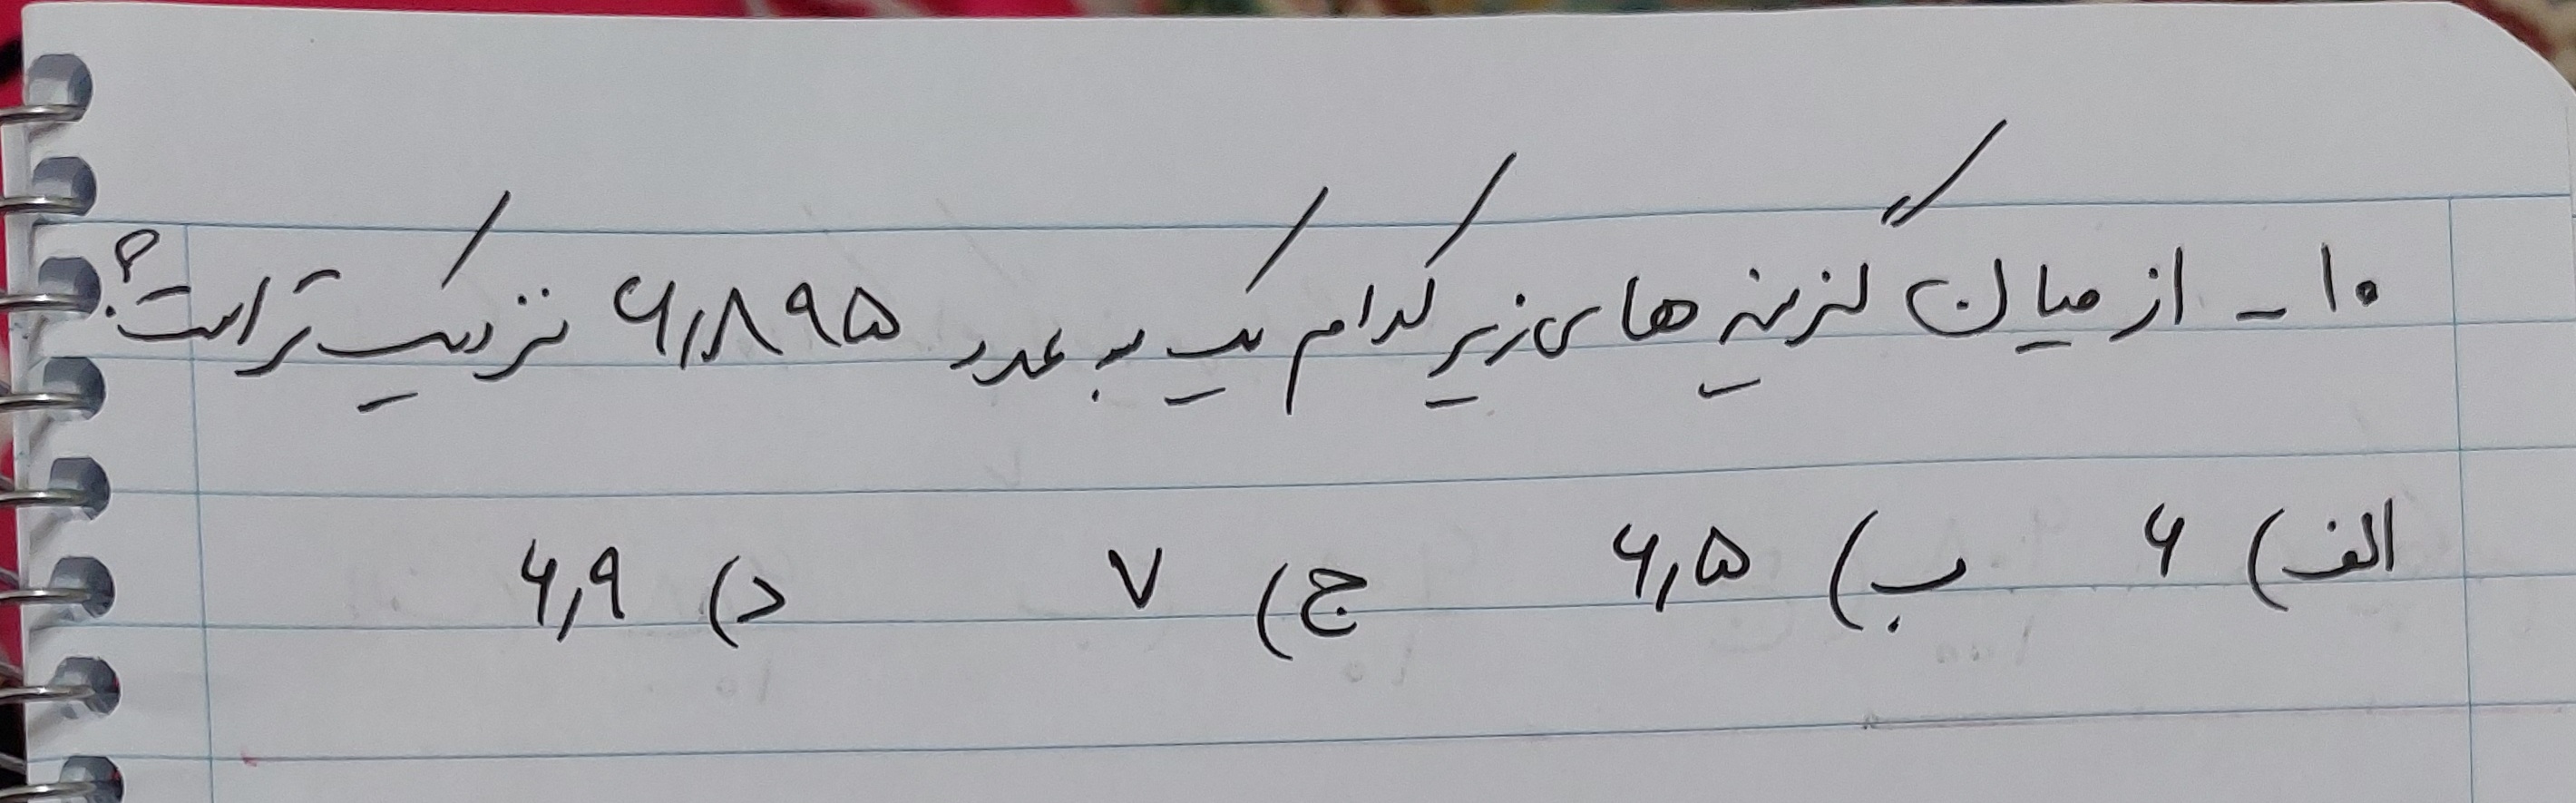 ۱۰ - از میان گزینه های زیر کدام یک به عدد ۶٫۸۹۵ نزدیک تر است؟
الف) ۶ ب) ۶٫۵ ج) ۷ د) ۶٫۹